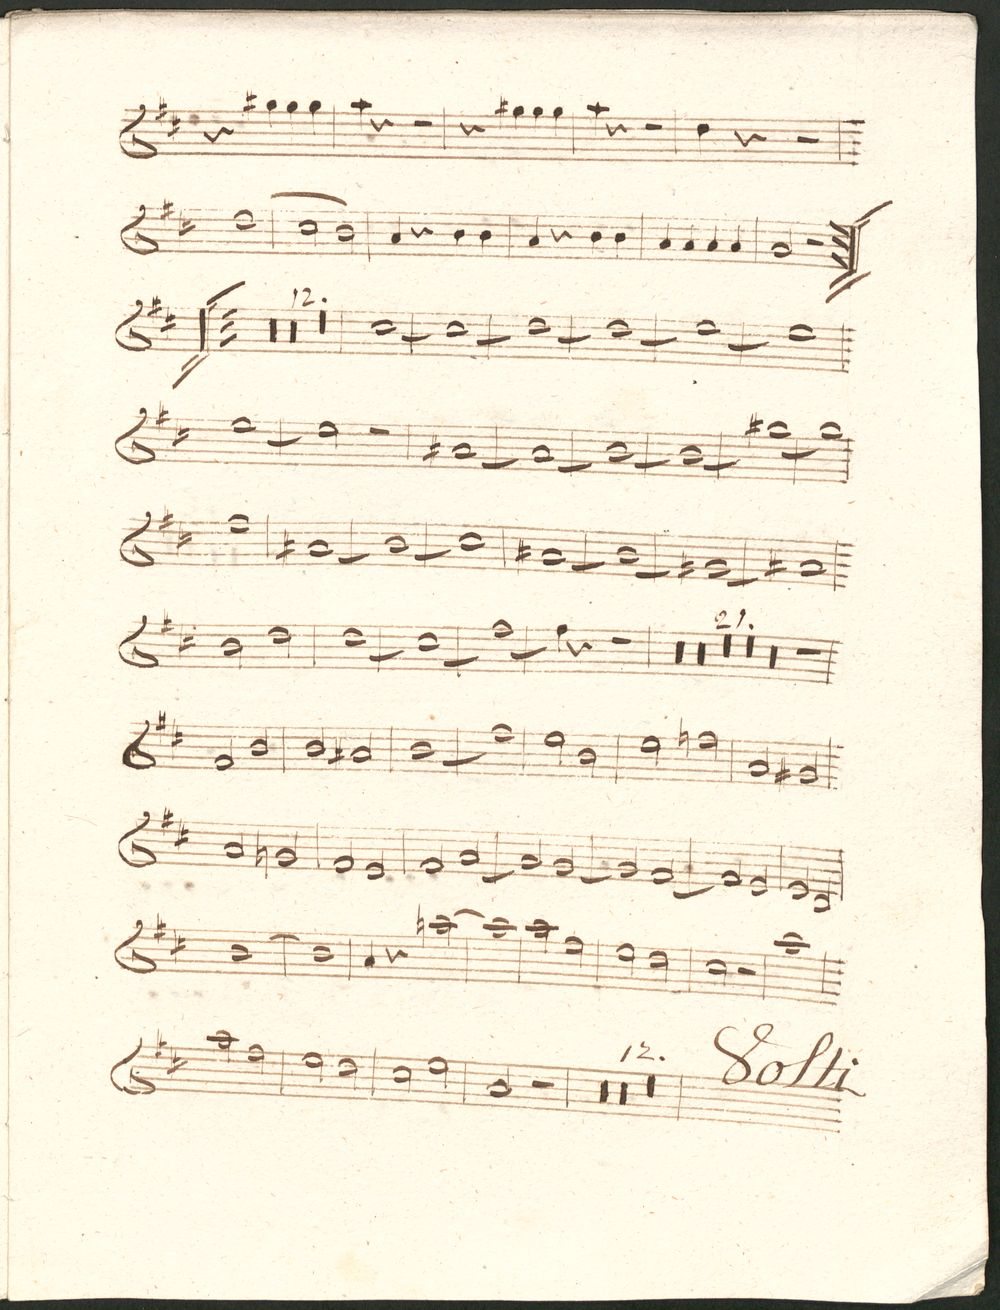 12.
21.
12.
Volti